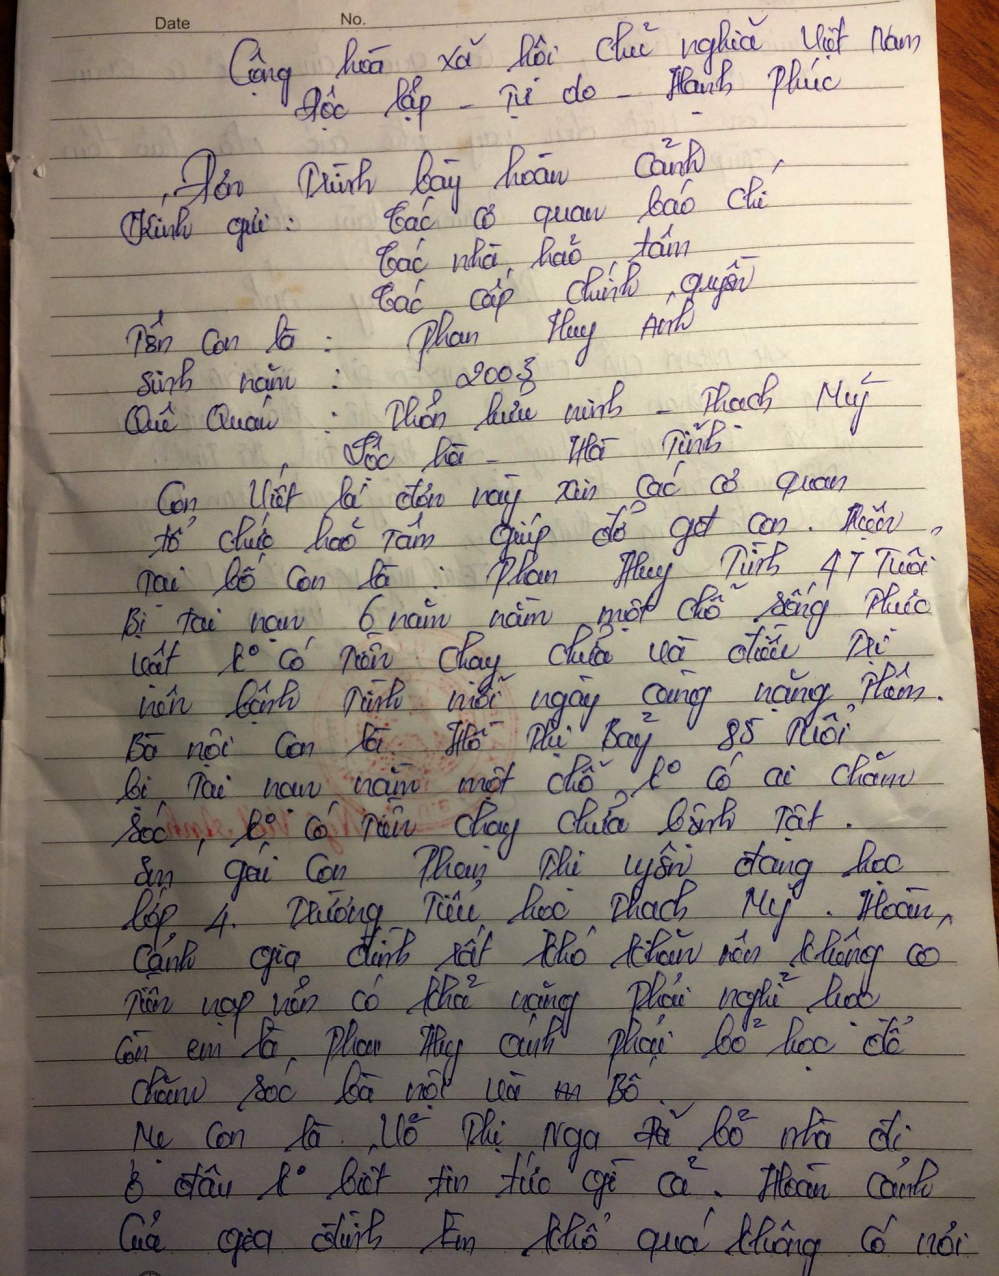 Date No.
Cộng hòa xã hội chủ nghĩa Việt Nam
Độc lập - Tự do - Hạnh Phúc
Đơn Trình bày hoàn cảnh
Kính gửi : Các cơ quan báo chí
Các nhà hảo tâm
Các cấp chính quyền
Tên con là : Phan Huy Ánh
Sinh năm : 2003
Quê Quán : Thôn hữu ninh - Thạch Mỹ
Lộc hà - Hà Tĩnh
Con Viết lá đơn này xin các cơ quan
tổ chức hảo tâm giúp đỡ gđ con. Hiện
tại bố con là : Phan Huy Tình 47 Tuổi
Bị tai nạn 6 năm nằm một chỗ sống thực
vật k° có tiền chạy chữa và điều trị
nên bệnh tình mỗi ngày càng nặng thêm.
Bà nội con là Hồ Thị Bảy 85 tuổi
bị tai nạn nằm một chỗ, k° có ai chăm
sóc, k° có tiền chạy chữa bệnh tật.
Em gái con Phan Thị uyên đang học
lớp 4. Trường Tiểu học Thạch Mỹ. Hoàn
cảnh gia đình rất khó khăn nên không có
tiền nạp nên có khả năng phải nghỉ học
còn em là Phan Huy ánh phải bỏ học để
chăm sóc bà nội và Bố.
Mẹ con là Võ Thị Nga đã bỏ nhà đi
ở đâu k° biết tin tức gì cả. Hoàn cảnh
của gia đình Em khổ quá không có nơi